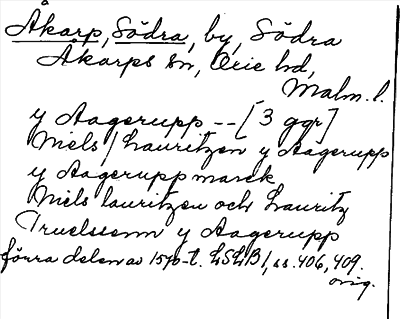 Åkarp, Södra, by, Södra
Åkarps sn, Oxie hd,
Malm. l.
y Aagerupp -- [3 ggr]
Niels / Lauritzen y Aagerupp
y Aagerupp marck
Niels lauritzen och Lauritz
Truelssenn y Aagerupp
förra delen av 1570-t. LSLB 1, ss. 406, 409.
orig.